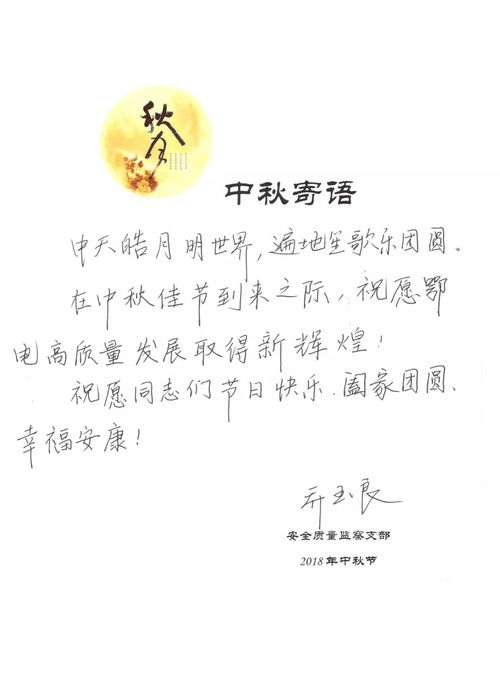 秋月
中秋寄语
中天皓月明世界，遍地笙歌乐团圆。
在中秋佳节到来之际，祝愿鄂
电高质量发展取得新辉煌！
祝愿同志们节日快乐、阖家团圆、
幸福安康！
乔玉良
安全质量监察支部
2018年中秋节